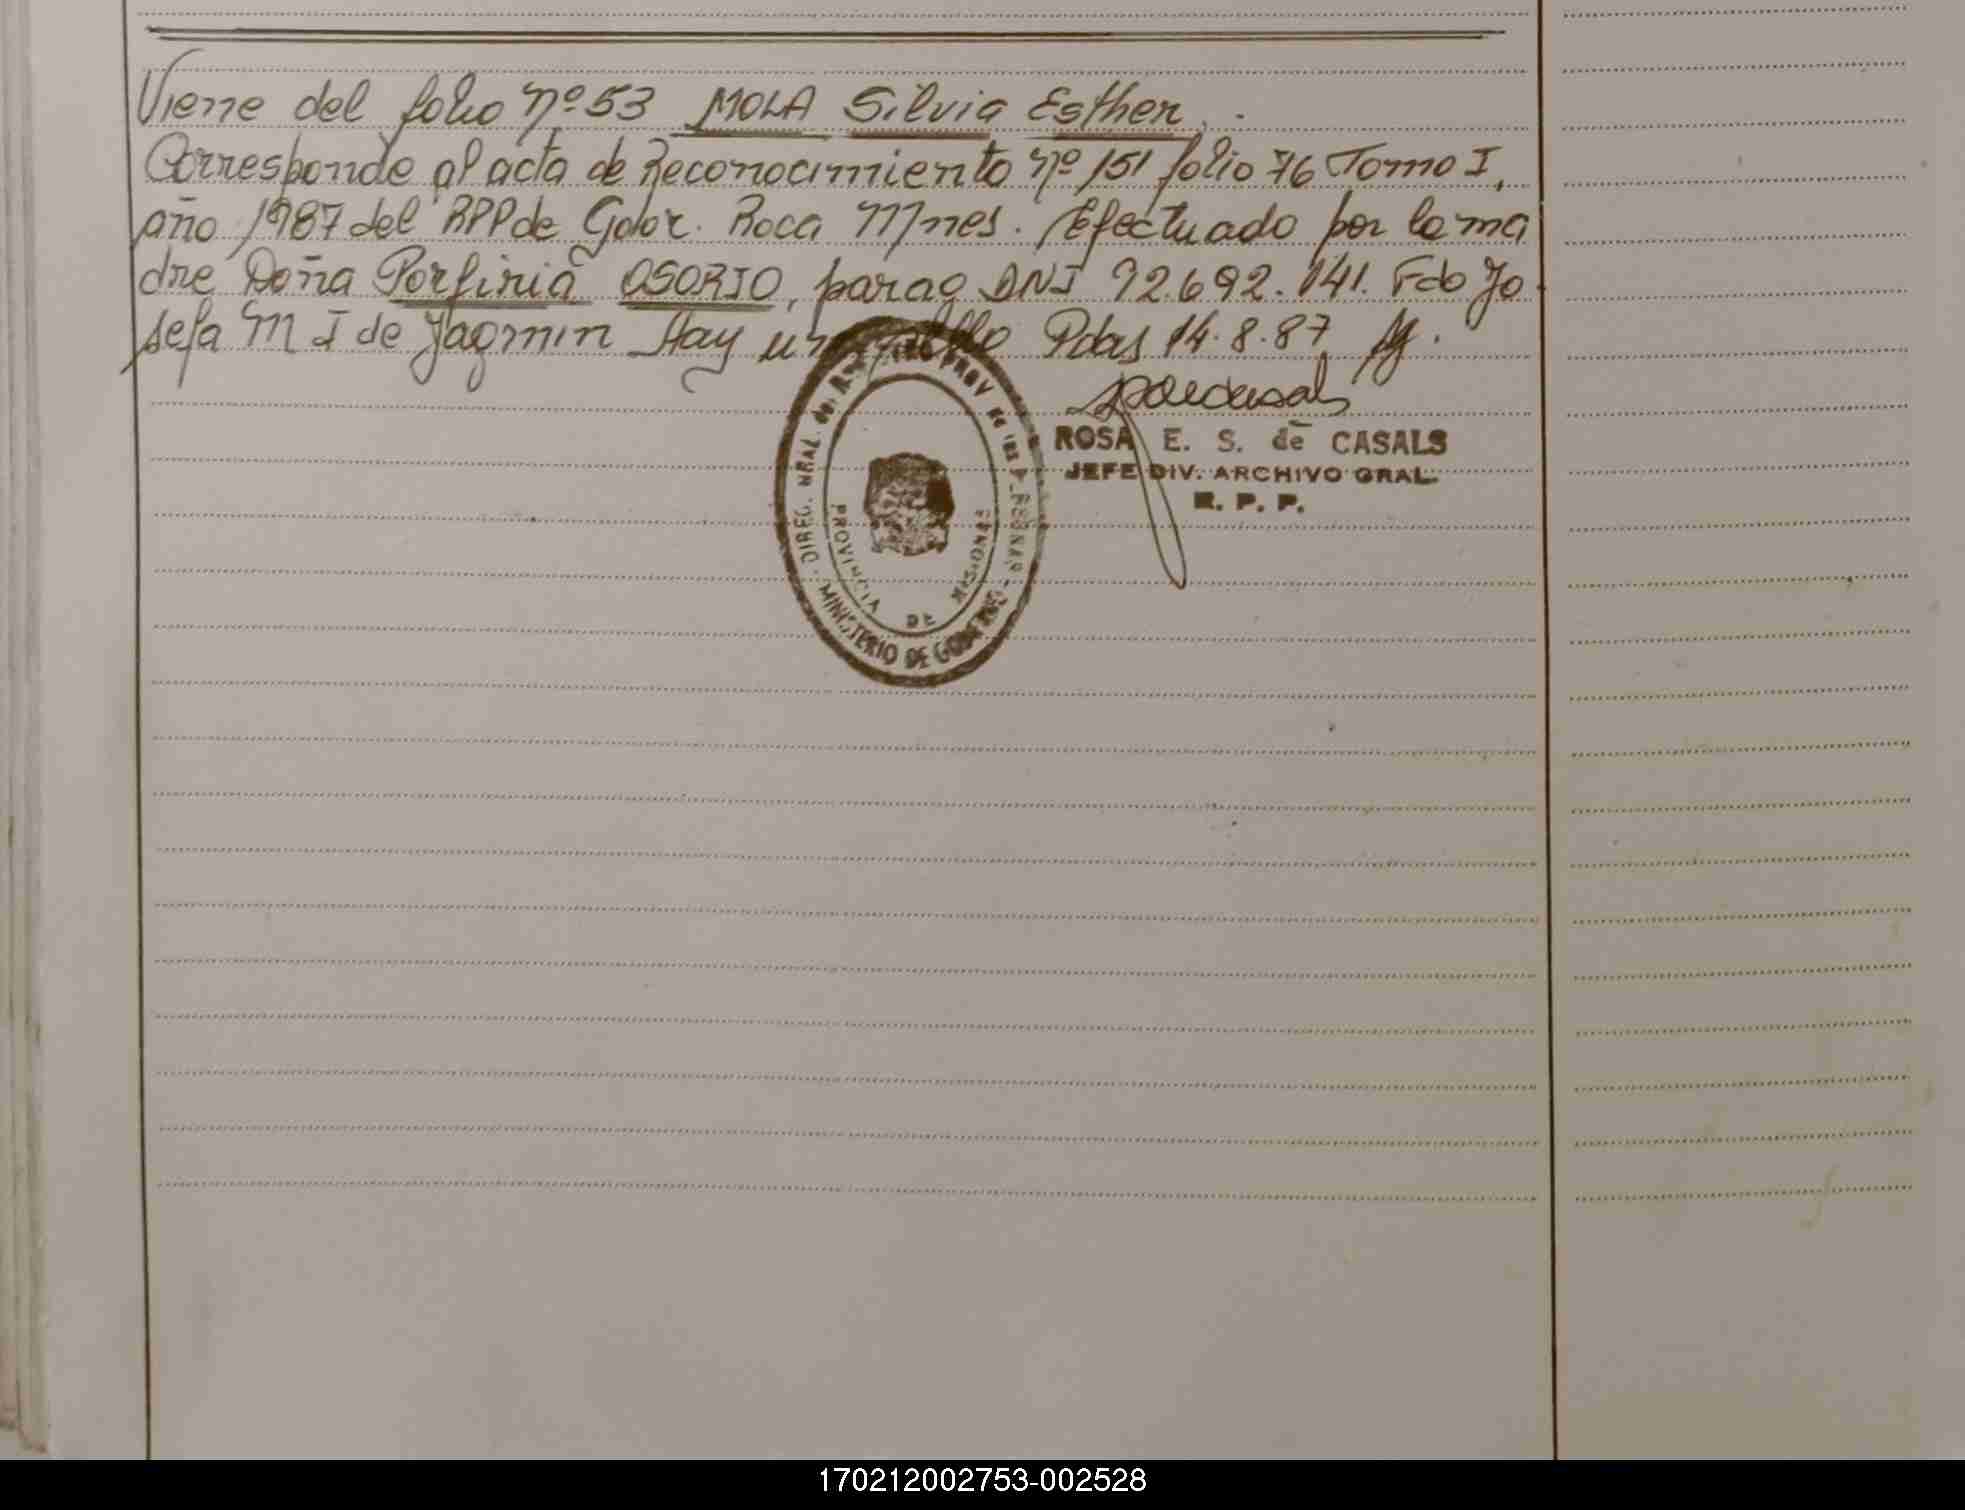 Viene del folio nº 53 MOLA Silvia Esther.
Corresponde al acta de Reconocimiento nº 151 folio 76 Tomo I,
año 1987 del RPP de Gdor. Roca Mnes. Efectuado por la ma
dre Doña Porfiria OSORIO, parag DNI 92.692.141. Fdo Jo
sefa M I de Jagmin Hay un sello Pdas 14.8.87
ROSA E. S. de CASALS
JEFE DIV. ARCHIVO GRAL.
R. P. P.
DIREC. GRAL. del PROV de las PERSONAS
MINISTERIO DE GOBIERNO
PROVINCIA DE MISIONES
170212002753-002528